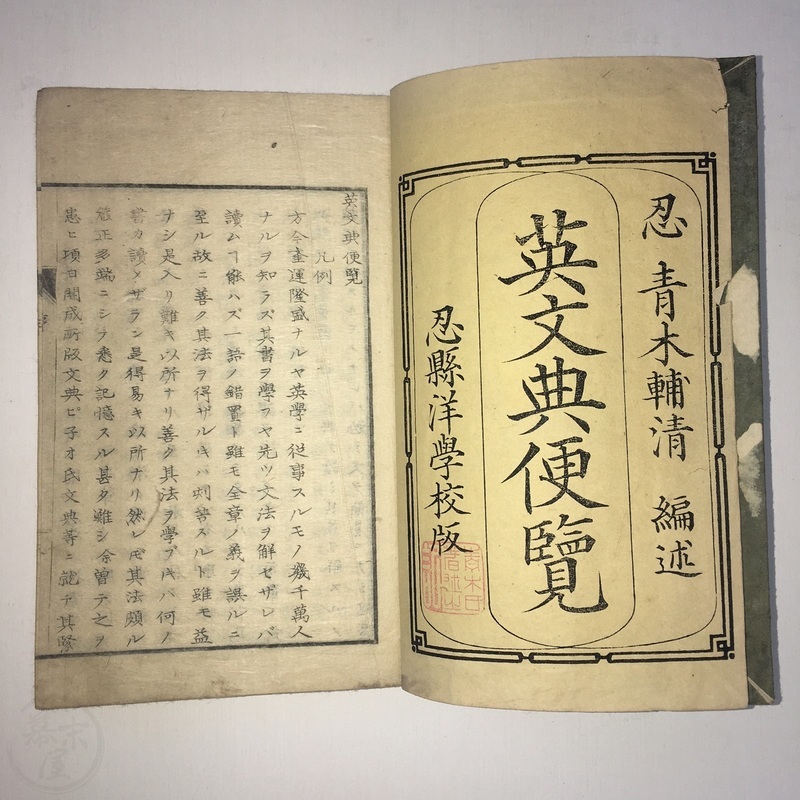 忍 青木輔清 編述
英文典便覽
忍縣洋學校版
英文典便覧
凡例
方今奎運隆盛ナルヤ英學ニ從事スルモノ幾千萬人
ナルヲ知ラズ其書ヲ學フヤ先ツ文法ヲ解セザレバ
讀ムヿ能ハズ一語ノ錯置ト雖モ全章ノ義ヲ誤ルニ
至ル故ニ善ク其法ヲ得ザル片ハ刻苦スルト雖モ益
ナシ是入リ難キ以所ナリ善ク其法ヲ學ブ片ハ何ノ
書カ讀メザラン是得易キ以所ナリ然レ𪜈其法頗ル
正多端ニシテ悉ク記憶スル甚タ難シ余曽テ之ヲ
患ヒ項日開成所版文典ピ子オ氏文典等ニ就テ其